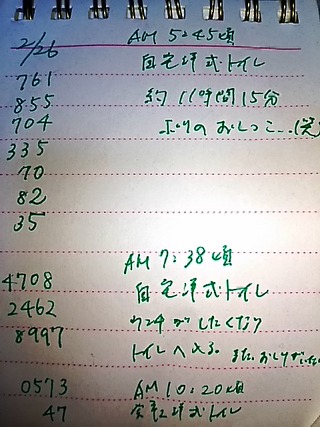 2/26 AM 5:45頃
761 自宅洋式トイレ
855 約11時間15分
704 ぶりのおしっこ…(笑)
335
70
82
35
AM 7:38頃
4708 自宅洋式トイレ
2462 ウンチがしたくなり
8997 トイレへ入る。また、おしりが
0573 AM 10:20頃
47 洋式トイレ